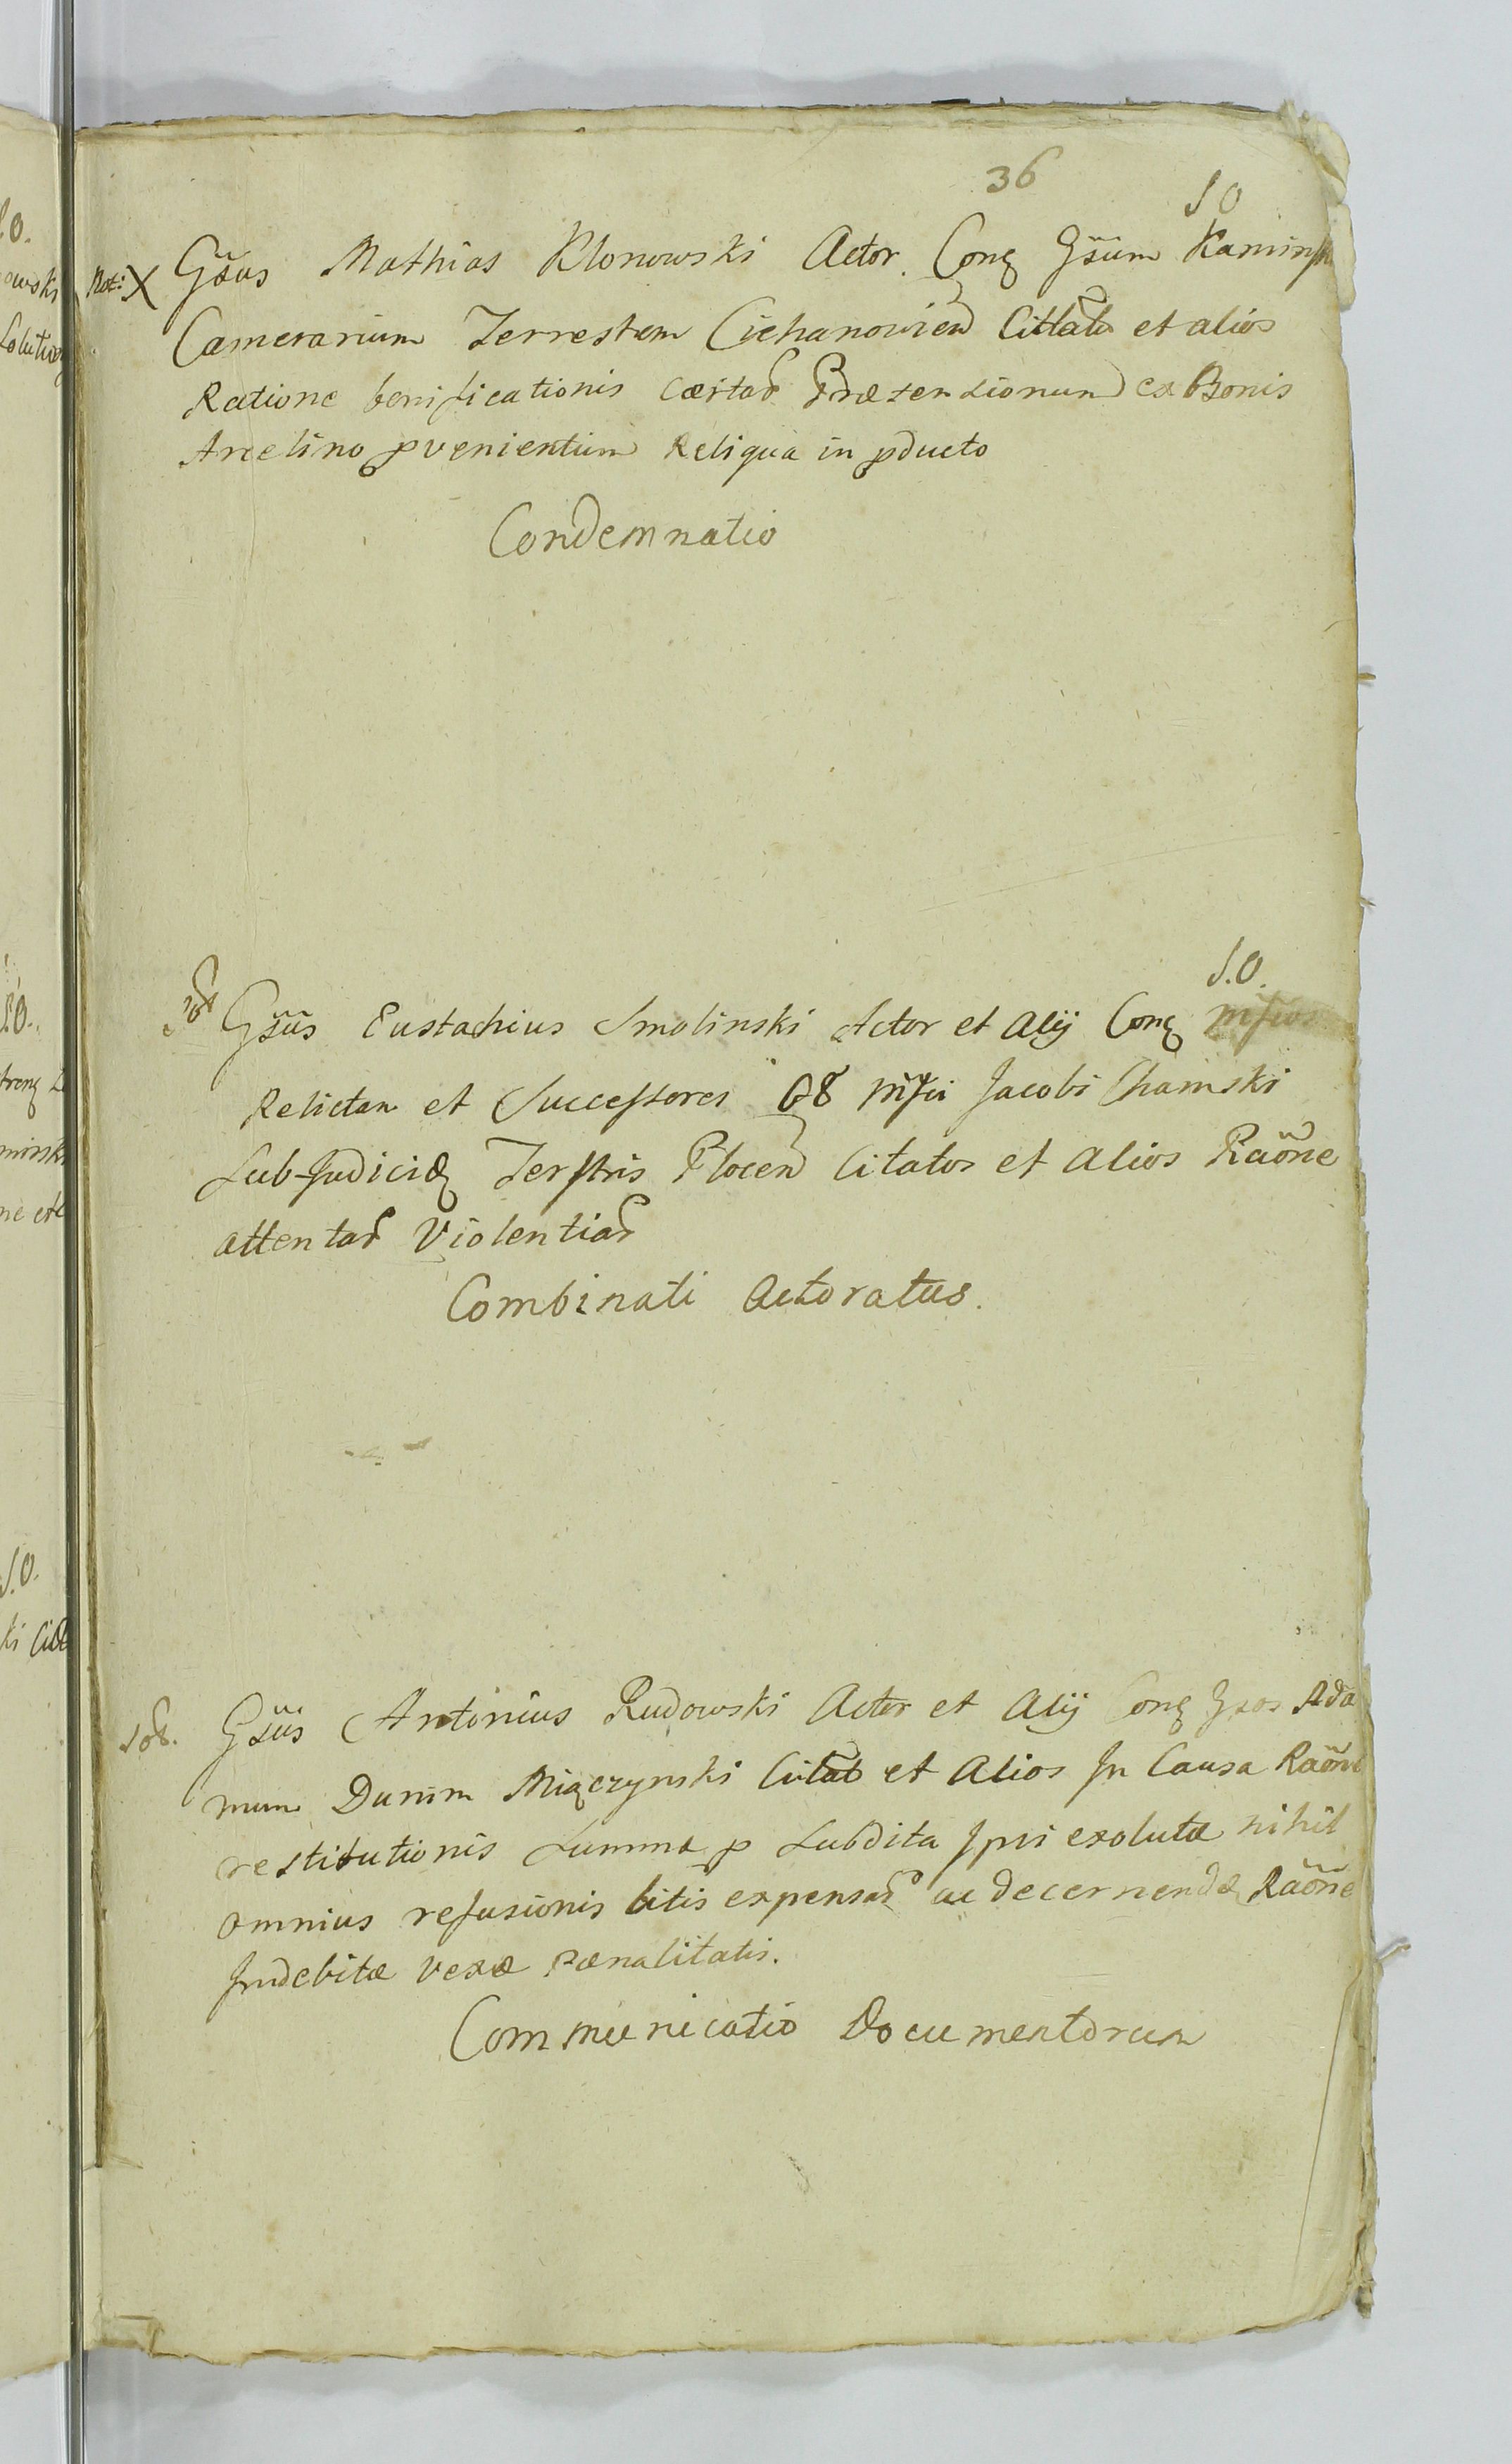 36
S O
Not: X Gsus Mathias Klonowski Actor Conq Gsum Kaminsk
Camerarium Terrestrem Ciehanovien Citlat et alios
Ratione bonificationis cœrtar Prætensionum ex Bonis
Arcelino pvenientium Reliqua in pducto
Condemnatio
S.O.
Gsus Eustachius Smolinski Actor et Alij Conq
Relictam et Successores Jacobi Chamski
Sub-Judicis Terstris Plocen Citatos et Alios Raone
attentar Violentiar
Combinati Actoratus.
Gsus Antonius Rudowski Actor et Alij Conq Gsos Ada
mum Dunim Miączynski Citat et Alios In Causa Raone
restitutionis summa p Subdita Ipsi exolutæ nihil
omnius refusionis litis expensar ac decernendæ Raone
Indebitæ vexæ Pænalitatis.
Communicatio Documentorum